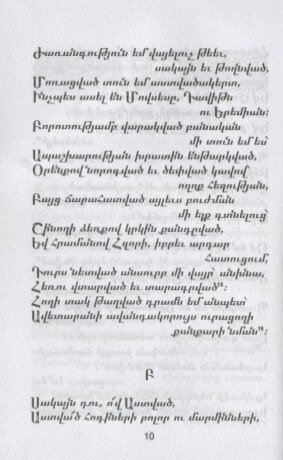 Ժառանգություն եմ վայելուչ թեեւ,
սակայն եւ թողնված,
Մոռացված տուն եմ աստվածակերտ,
Ինչպես ասել են Մովսեսը, Դավիթն
ու Երեմիան:
Բորոտությամբ վարակված բանական
մի տուն եմ ես՝
Ապաշխարության խրատին ենթարկված,
Օրենքով նորոգված եւ ծեփված կավով՝
ողոք հեզության,
Բայց ճարահատված այլեւս բուժման
մի ելք գտնելուց՝
Շինողի ձեռքով կրկին քանդըված,
Եվ Հրամանով Հզորի, իբրեւ արդար
Հատուցում,
Դուրս նետված անսուրբ մի վայր՝ անխնա,
Հեռու վտարված եւ տարագրված¹⁸:
Հողի տակ թաղված դրամն եմ անպետ՝
Ավետարանի ավանդակորույս ուրացողի
քանքարի նման¹⁹:
Բ
Սակայն դու, ո՜վ Աստված,
Աստվա՜ծ Հոգիների բոլոր ու մարմինների,
10